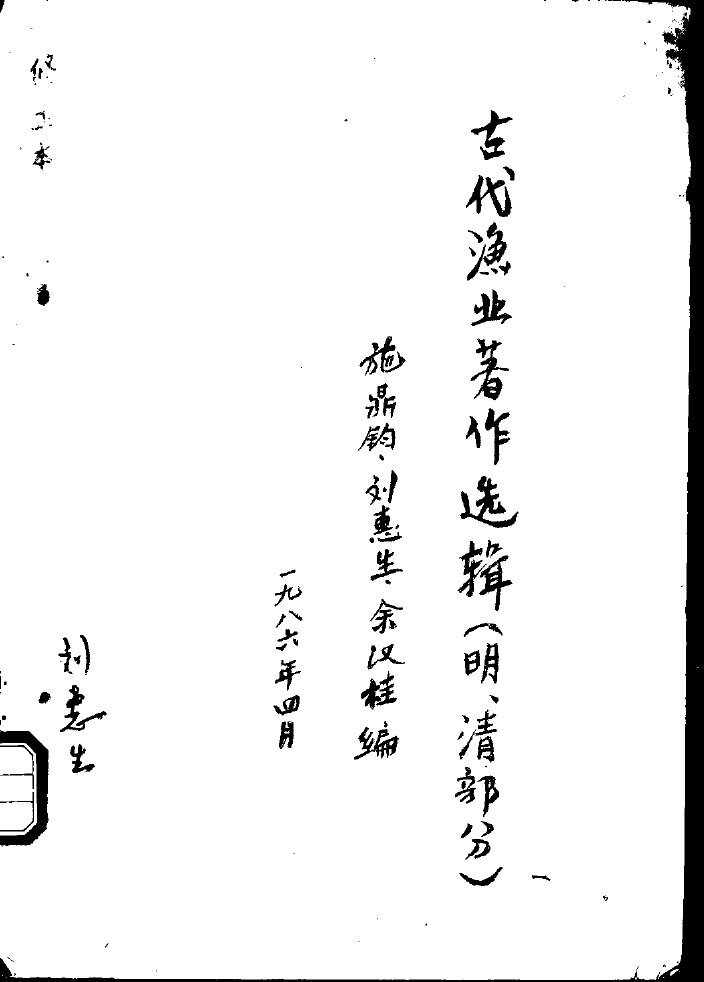 古代渔业著作选辑（明、清部分）
施鼎钧、刘惠生、余汉桂编
一九八六年四月
刘惠生
修正本